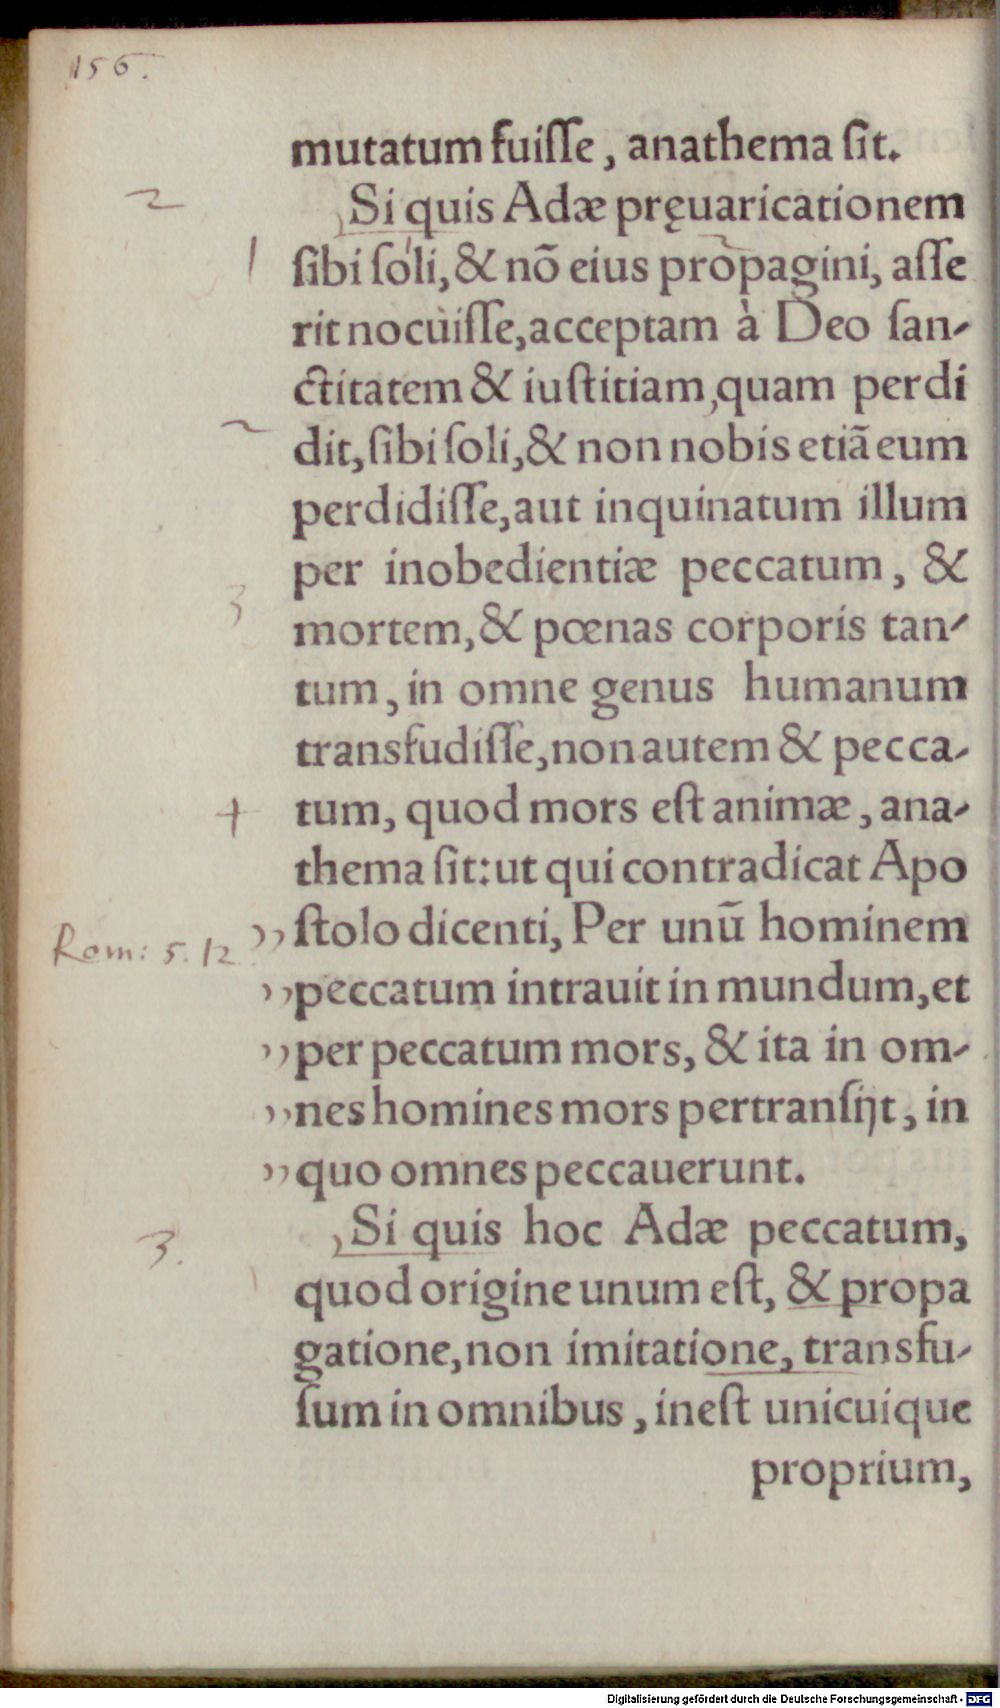 156.
mutatum fuiſſe, anathema ſit.
2
Si quis Adæ pręuaricationem
1
ſibi ſoli, & nõ eius propagini, aſſe
rit nocuiſſe, acceptam à Deo ſan-
ctitatem & iuſtitiam, quam perdi
2
dit, ſibi ſoli, & non nobis etiã eum
perdidiſſe, aut inquinatum illum
per inobedientiæ peccatum, &
3
mortem, & pœnas corporis tan-
tum, in omne genus humanum
transfudiſſe, non autem & pecca-
4
tum, quod mors eſt animæ, ana-
thema ſit: ut qui contradicat Apo
Rom: 5. 12
,, ſtolo dicenti, Per unũ hominem
,, peccatum intrauit in mundum, et
,, per peccatum mors, & ita in om-
,, nes homines mors pertranſijt, in
,, quo omnes peccauerunt.
3.
Si quis hoc Adæ peccatum,
1
quod origine unum eſt, & propa
gatione, non imitatione, transfu-
ſum in omnibus, ineſt unicuique
proprium,
Digitalisierung gefördert durch die Deutsche Forschungsgemeinschaft - DFG